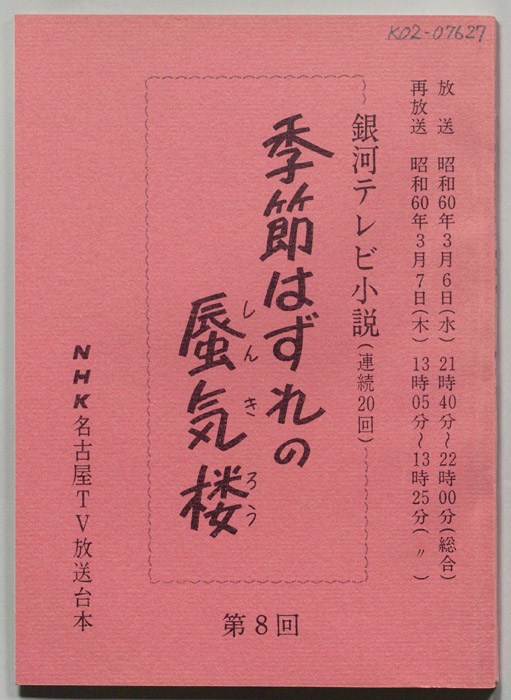 K02-07627
放送 昭和60年3月6日(水) 21時40分~22時00分(総合)
再放送 昭和60年3月7日(木) 13時05分~13時25分( 〃 )
銀河テレビ小説(連続20回)
季節はずれの
蜃気楼
しんきろう
第8回
NHK名古屋TV放送台本